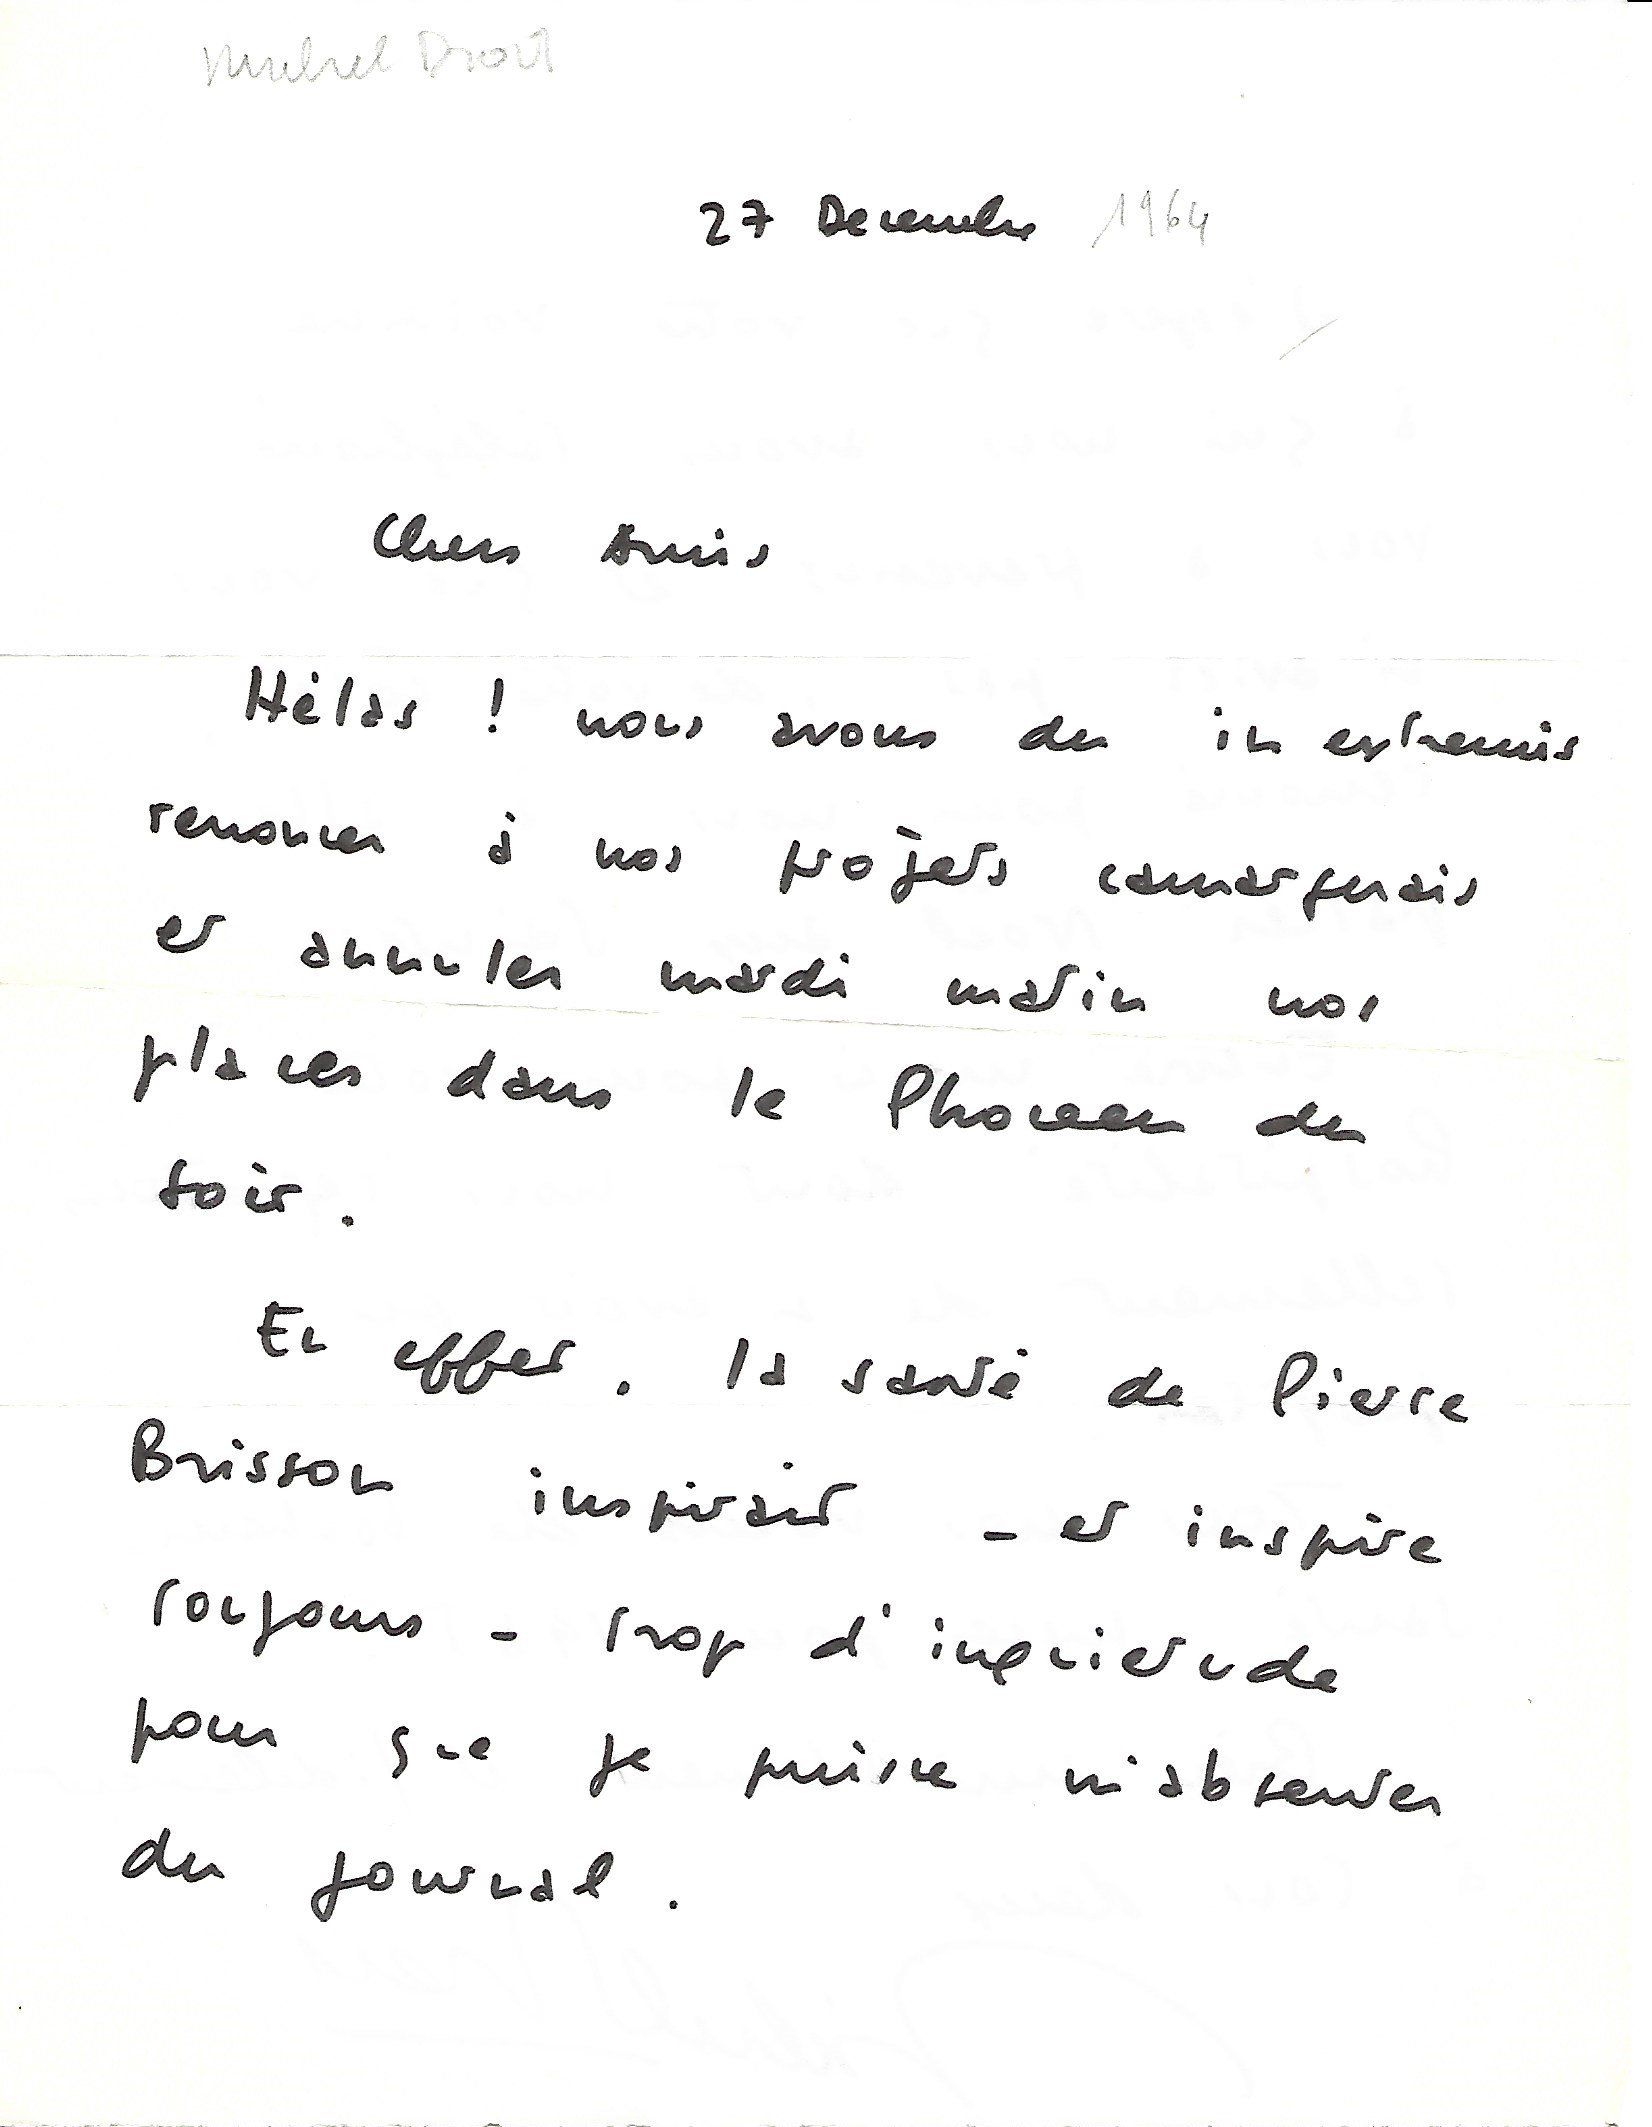 Michel Droit
27 Decembre 1964
Chers Amis
Hélas ! nous avons du in extremis
renoncer à nos projets camarguais
et annuler mardi matin nos
places dans le Phoceen du
soir.
En effet, la santé de Pierre
Brisson inspirait - et inspire
toujours - trop d'inquietude
pour que je puisse m'absenter
du journal.